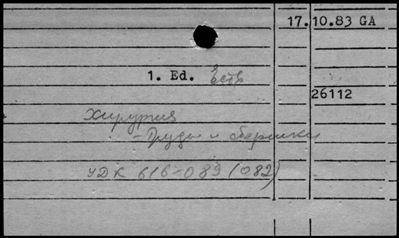 17.10.83 GA
1. Ed. есть
26112
Хирургия
- Труды и сборники
УДК 616-089 (082)